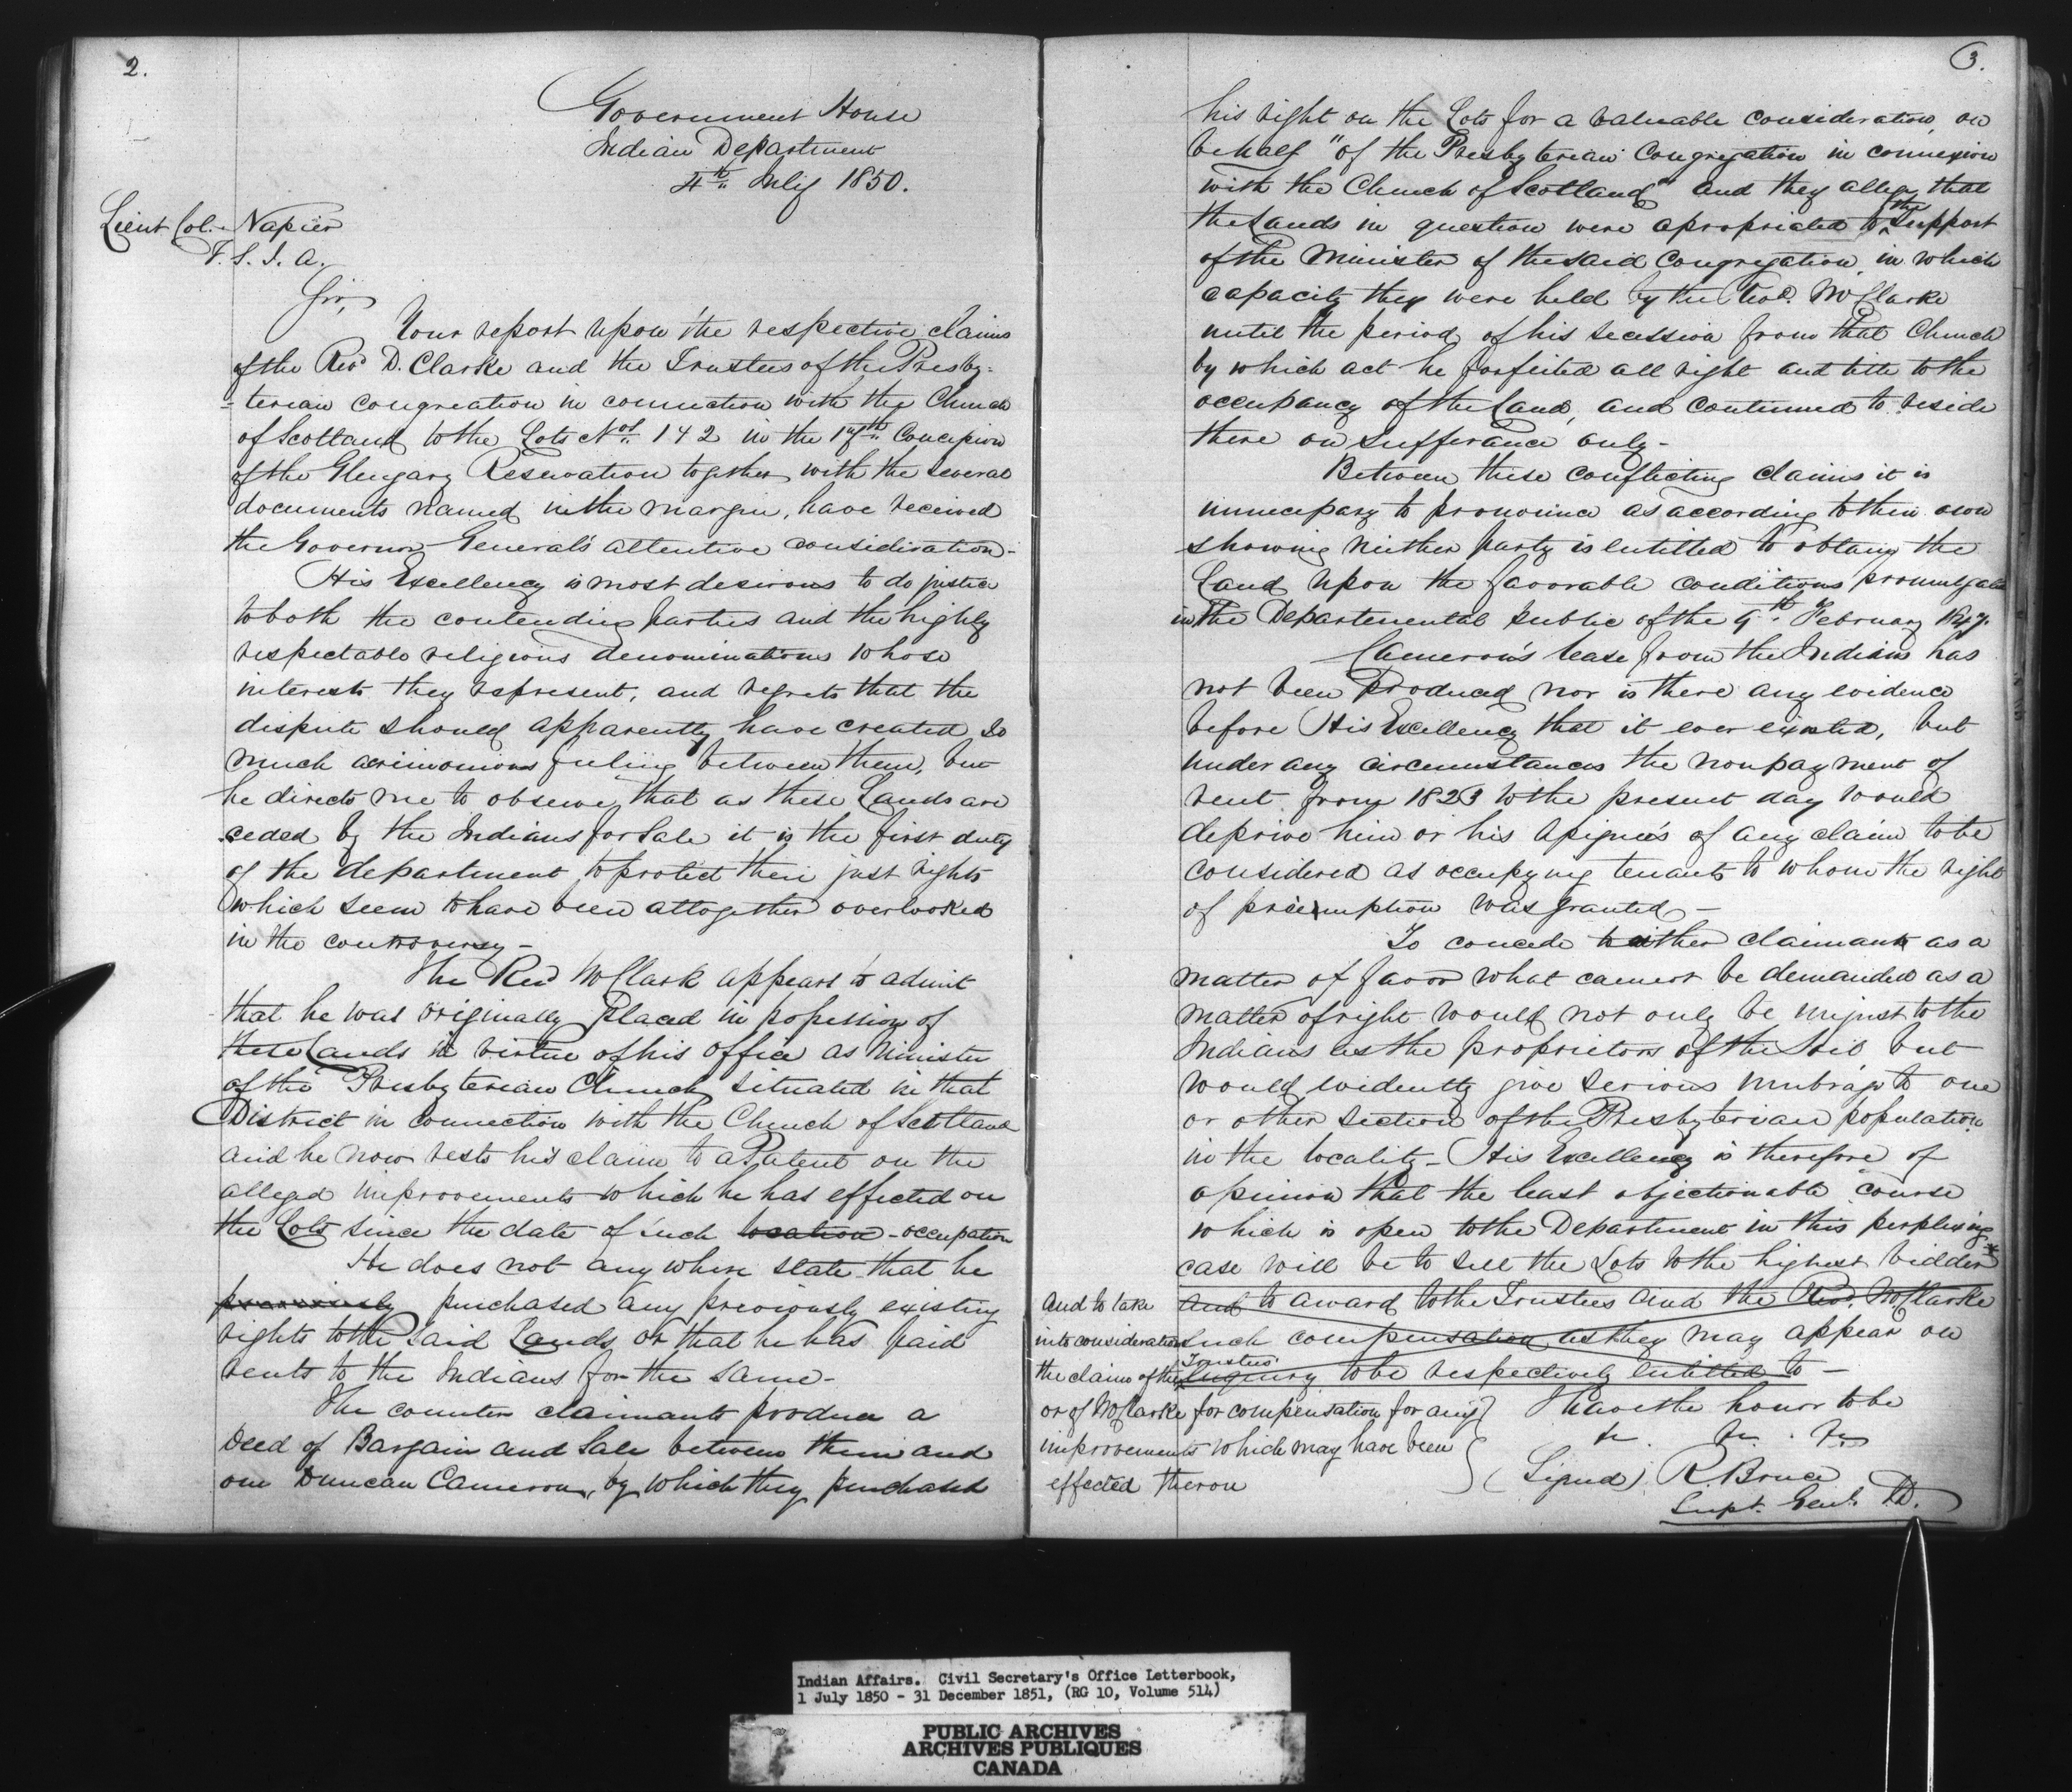 2.
Government House
Indian Department
4th July 1850.
Lieut Col. Napier
Sir,
Your report upon the respective claims
of the Revd D. Clarke and the Trustees of the Presby-
-terian congreation in connection with the Church
of Scotland to the Lots Nos 1 & 2 in the Concession
of the Glengary Reservation together with the several
documents named in the margin, have received
the Governor General's attentive consideration -
His Excellency is most desirous to do justice
to both the contending parties and the highly
respectable religious denominations whose
interests they represent, and regrets that the
dispute should apparently have created so
much acrimonious feeling between them, but
he directs me to observe that as these Lands are
ceded by the Indians for Sale it is the first duty
of the department to protect their just rights
which seem to have been altogether overlooked
in the controversy -
The Revd Mr Clark appears to admit
that he was originally placed in possession of
these Lands in virtue of his office as Minister
of the Presbyterian Church situated in that
District in connection with the Church of Scotland
and he now rests his claim to a Patent on the
alleged improvements which he has effected on
the Lots since the date of such location - occupation
He does not any where state that he
previously purchased any previously existing
rights to the said Lands or that he has paid
rents to the Indians for the same -
The counter claimants produce a
Deed of Bargain and Sale between them and
one Duncan Cameron, by which they purchased
3.
his right on the Lots for a valuable consideration, on
behalf "of the Presbyterian Congregation in connexion
with the Church of Scotland" and they allege that
the Lands in question were apropriated to the Support
of the Minister of the said Congregation, in which
capacity they were held by the Revd. Mr Clarke
until the period of his secession from that Church
by which act he forfeited all right and title to the
occupancy of the Land, and continued to reside
there on sufferance only -
Between these conflicting claims it is
unnecessary to pronounce as according to their own
showing neither party is entitled to obtain the
Land upon the favorable conditions promulgated
in the Departemental public of the February 1847.
Cameron's lease from the Indians has
not been produced nor is there any evidence
before His Excellency that it ever existed, but
under any circumstances the nonpayment of
rent from 1823 to the present day would
deprive him or his Assignee's of any claim to be
considered as occupying tenants to whom the right
of preemption was granted -
To concede to either claimant as a
matter of favor what cannot be demanded as a
matter of right would not only be unjust to the
Indians as the proprietors of the Soil, but
would evidently give serious umbrage to one
or other section of the Presbyterian population
in the locality - His Excellency is therefore of
opinion that the least objectionable course
which is open to the Department in this perplexing
case will be to sell the Lots to the highest bidder *
and to award to the Trustees and the Revd. Mr Clarke
such compensation as they may appear on
enquiry to be respectively entitled to -
And to take
into consideration
the claim of the Trustees
or of Mr Clarke for compensation for any
improvements which may have been
effected theron
I have the honor to be
&c. &c. &c
(Signed) R. Bruce
Supt. Genl. I.D.
Indian Affairs. Civil Secretary's Office Letterbook,
1 July 1850 - 31 December 1851, (RG 10, Volume 514)
PUBLIC ARCHIVES
ARCHIVES PUBLIQUES
CANADA